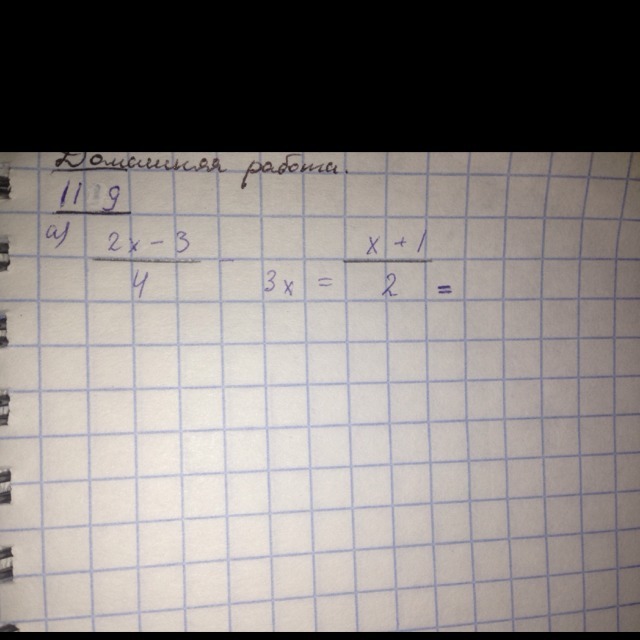 Домашняя работа.
11 9
а) (2x - 3)/4 - 3x = (x + 1)/2 =